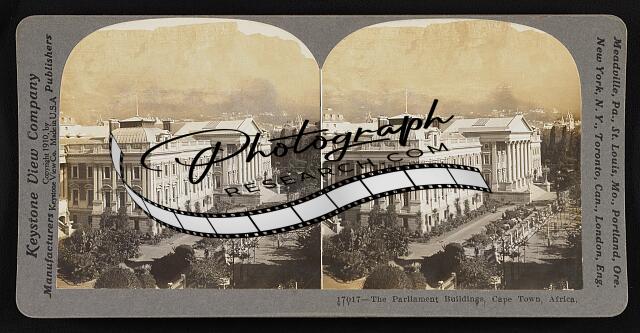 Keystone View Company
Copyright 1910, by
Keystone View Co. Made in U.S.A.
Manufacturers Publishers
Photograph
RESEARCH.COM
Meadville, Pa., St. Louis, Mo., Portland, Ore.
New York, N. Y., Toronto, Can., London, Eng.
17017—The Parliament Buildings, Cape Town, Africa.